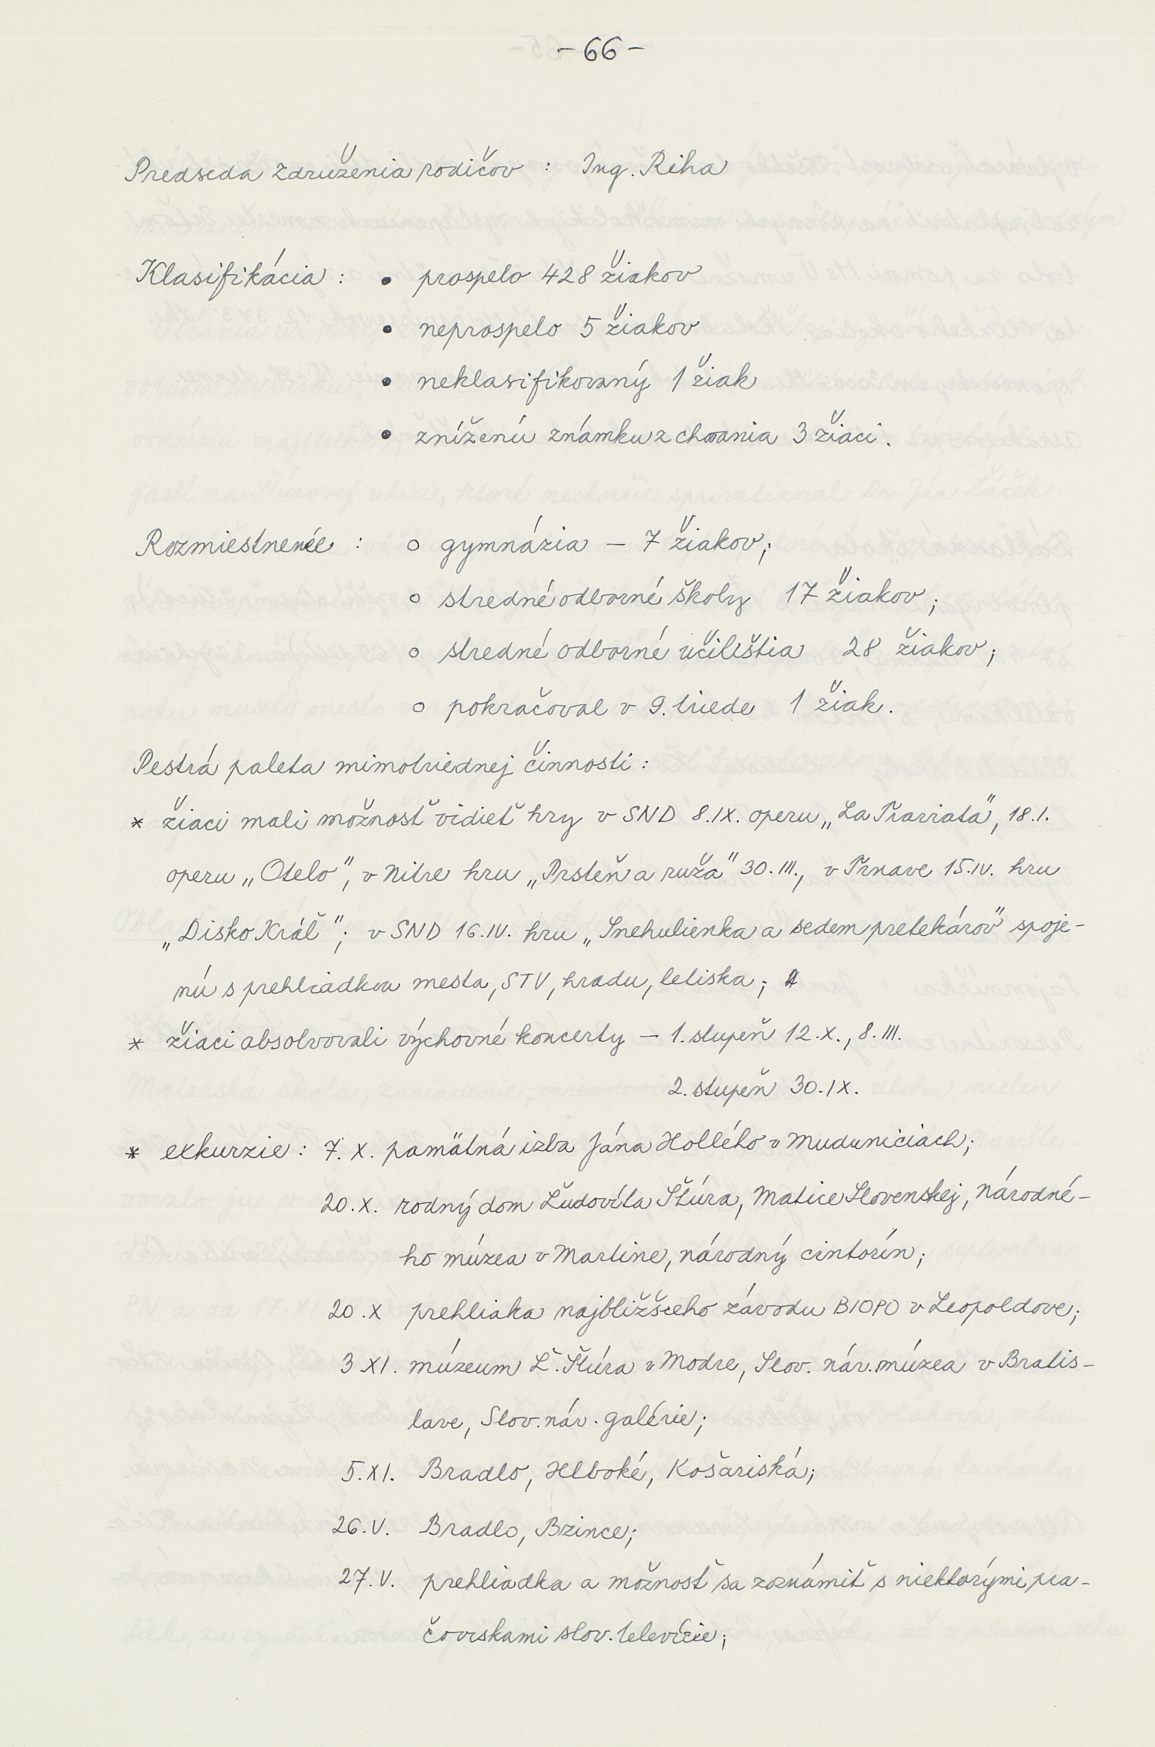 - 66 -
Predseda združenia rodičov : Ing. Riha
Klasifikácia : • prospelo 428 žiakov
• neprospelo 5 žiakov
• neklasifikovaný 1 žiak
• zníženú známku z chovania 3 žiaci.
Rozmiestnenie : o gymnázia – 7 žiakov;
o stredné odborné školy 17 žiakov;
o stredné odborné učilištia 28 žiakov;
o pokračoval v 9. triede 1 žiak.
Pestrá paleta mimotriednej činnosti :
* žiaci mali možnosť vidieť hry v SND 8.IX. operu „La Traviata", 18.I.
operu „Otelo", v Nitre hru „Prsteň a ruža" 30.III., v Trnave 15.IV. hru
„Disko Kráľ"; v SND 16.IV. hru „Snehulienka a sedem pretekárov" spoje-
nú s prehliadkou mesta, STV, hradu, letiska;
* žiaci absolvovali výchovné koncerty – 1. stupeň 12.X., 8.III.
2. stupeň 30.IX.
* exkurzie : 7. X. pamätná izba Jána Hollého v Maduniciach;
20.X. rodný dom Ľudovíta Štúra, Matice Slovenskej, národné-
ho múzea v Martine, národný cintorín;
20.X prehliaka najbližšieho závodu BIOPO v Leopoldove;
3 XI. múzeum Ľ. Štúra v Modre, Slov. nár. múzea v Bratis-
lave, Slov. nár. galérie;
5.XI. Bradlo, Hlboké, Košariská;
26.V. Bradlo, Bzince;
27.V. prehliadka a možnosť sa zoznámiť s niektorými pra-
čoviskami slov. televízie;